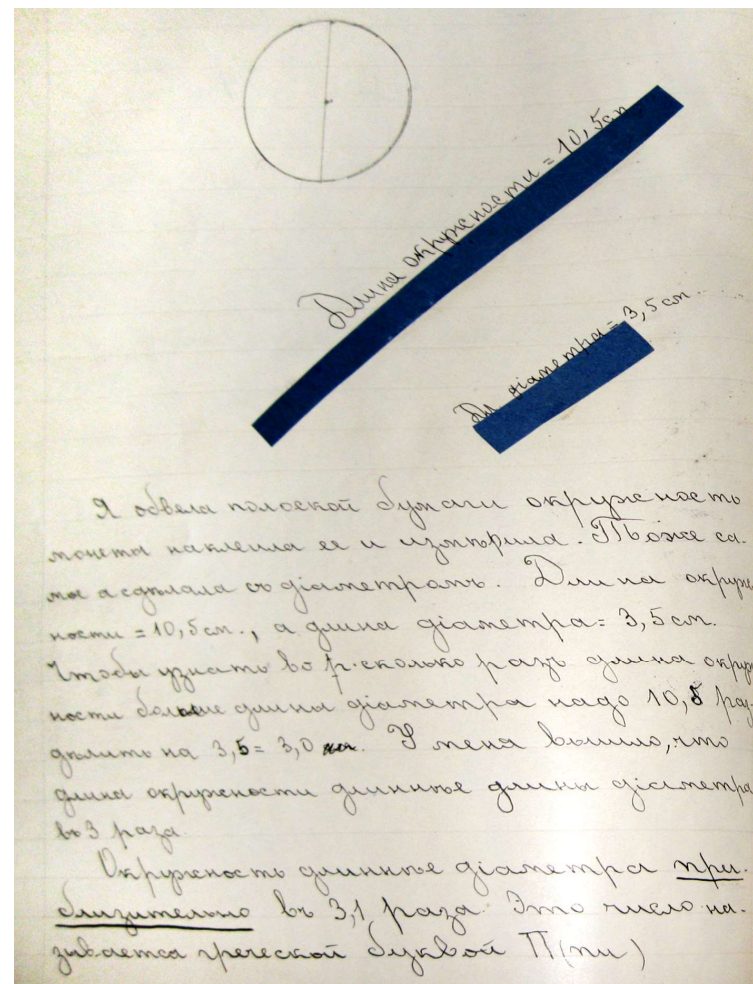 Длина окружности = 10,5 см
Дл діаметра = 3,5 см.
Я обвела полоской бумаги окружность
монеты наклеила ее и измѣрила. Тоже са-
мое я сдѣлала съ діаметромъ. Длина окруж
ности = 10,5 см., а длина діаметра = 3,5 см.
Чтобы узнать во сколько разъ длина окруж
ности больше длина діаметра надо 10,5 раз-
дѣлить на 3,5 = 3,0. У меня вышло, что
длина окружности длиннѣе длины діаметра
въ 3 раза.
Окружность длиннѣе діаметра при-
близительно въ 3,1 раза. Это число на-
зывается греческой буквой П (пи)